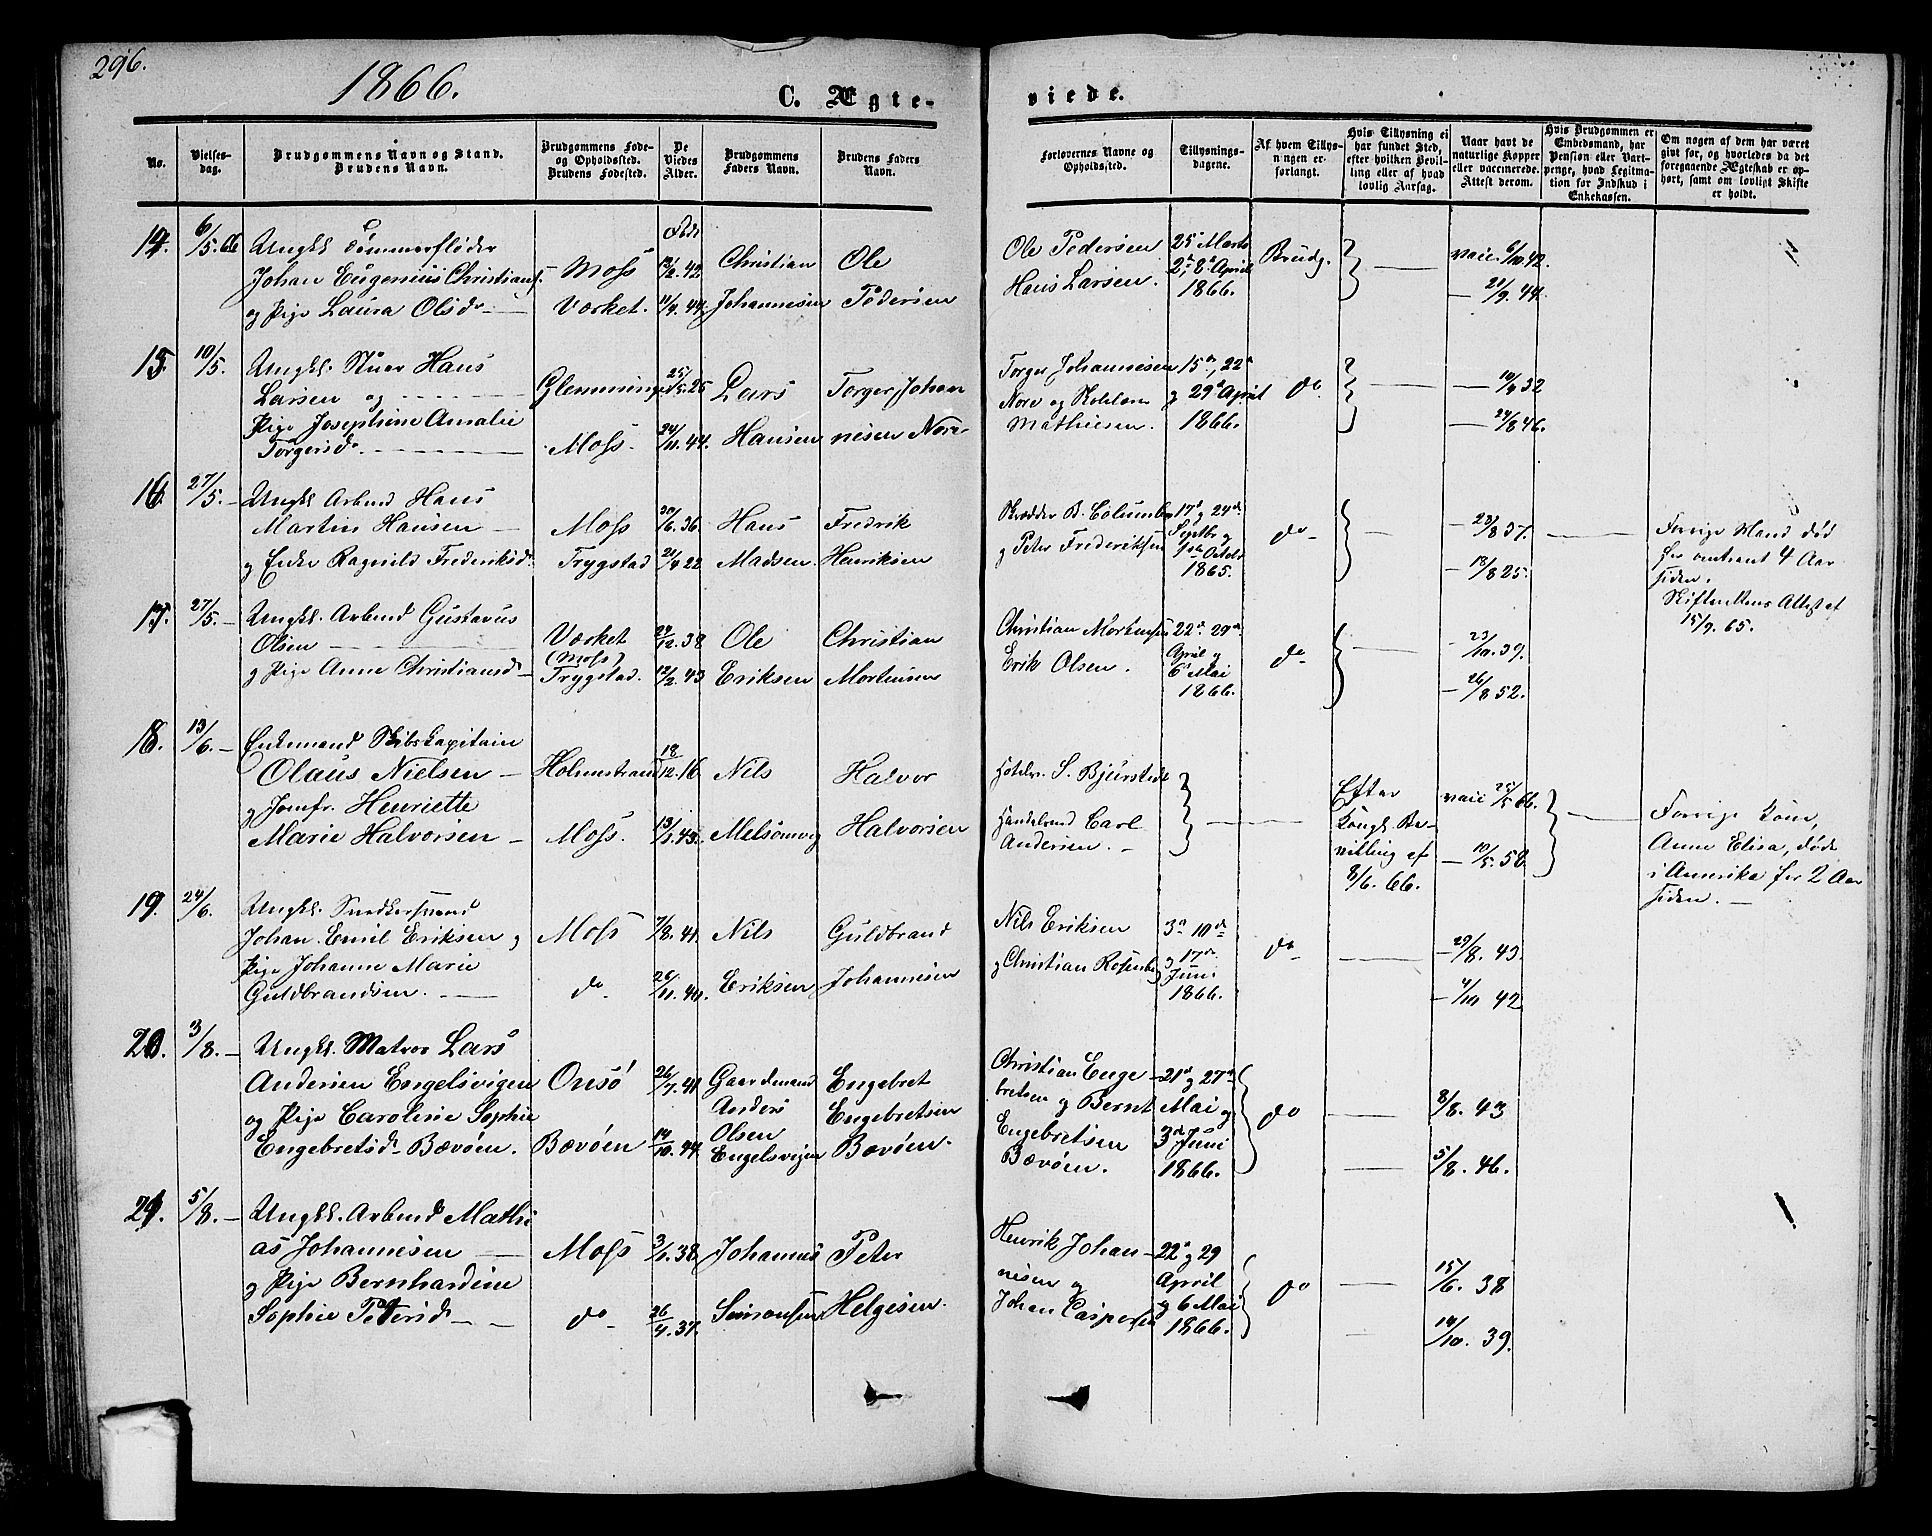 296.
1866.
C. Ægte-
viede.
No.
Vielses-
dag.
Brudgommens Navn og Stand.
Brudens Navn.
Brudgommens Føde-
og Opholdssted.
Brudens Fødested.
De
Viedes
Alder.
Brudgommens
Faders Navn.
Brudens Faders
Navn.
Forlovernes Navne og
Opholdssted.
Tillysnings-
dagene.
Af hvem Tillys-
ningen er
forlangt.
Hvis Tillysning ei
har fundet Sted,
efter hvilken Bevil-
ling eller af hvad
lovlig Aarsag.
Naar havt de
naturlige Kopper
eller vaccinerede.
Attest derom.
Hvis Brudgommen er
Embedsmand, har
Pension eller Vart-
penge, hvad Legitima-
tion for Indskud i
Enkekassen.
Om nogen af dem har været
gift før, og hvorledes da det
foregaaende Ægteskab er op-
hørt, samt om lovligt Skifte
er holdt.
14. 6/5. 66 Ungkl Tømmerfløder
Johan Eugenius Christians.
og Pige Laura Olsd
Moss
Værket.
Født
42.
11/9. 44.
Christian
Johannesen
Ole
Pedersen
Ole Pedersen
Hans Larsen.
25 Marts
2d, 8d April
1866.
Brudg.
vacc 6/10 42.
21/9. 44.
15. 10/5. Ungkl. Stuer Hans
Larsen og
Pige Josephine Amalie
Torgersd.
Glemminge
Moss.
25/5. 25
24/11. 44.
Lars
Hansen
Torger Johan
nesen Nore
Torger Johannesen
Nore og
Mathiesen.
15d, 22d
og 29d April
1866.
do.
10/9 32
24/8 46.
16. 27/5. Ungkl Arbmd Hans
Martin Hansen
og Enke Ragnild Frederiksd.
Moss
Trygstad
20/6. 36
21/4 22
Hans
Madsen
Fredrik
Henriksen
Skrædder B. Columbus
og Peter Frederiksen
17d og 24de
Septbr og
1ste Octobr
1865.
do
23/8 37.
18/8 25.
Forrige Mand død
for omtrent 4 Aar
siden.
Skifterettens Attest af
15/9. 65.
17. 27/5. Ungkl. Arbmd Gustavus
Olsen
og Pige Anne Christiansd
Værket
(Moss)
Trygstad.
24/12. 38
12/2. 43
Ole
Eriksen
Christian
Mortensen
Christian Mortensen
Erik Olsen.
22d. 29de
April og
6d Mai
1866.
do
23/10. 39.
26/8 52.
18. 13/6. Enkemand Skibskapitain
Olaus Nielsen
og Jomfr. Henriette
Marie Halvorsen
Holmestrand
Moss.
18/12. 16
13/3. 43.
Nils
Melsomvig
Halvor
Halvorsen
Hotelv. S. Bjurstedt
Handelsmd Carl
Andersen.
Efter
Kongl. Be-
villing af
8/6. 66.
vacc 25/5 66.
10/5. 58
Forrige Kone,
Anne Elisa, døde
i Amerika for 2 Aar
siden.
19. 24/6. Ungkl. Snedkersvend
Johan Emil Eriksen og
Pige Johanne Marie
Guldbrandsen.
Moss
do
7/8. 41.
26/11. 40.
Nils
Eriksen
Guldbrand
Johannesen
Nils Eriksen
og Christian Rosenberg
3d 10de
og 17de
Juni
1866.
do
29/8. 43.
4/10 42
20. 3/8. Ungkl. Matros Lars
Andersen Engelsvigen
og Pige Caroline Sophie
Engebretsd Bævøen.
Onsø
Bævøen
26/7. 41
14/10. 44.
Gaardmand
Anders
Olsen
Engelsvigen
Engebret
Engebretsen
Bævøen.
Christian Enge
bretsen og Bernt
Engebretsen
Bævøen.
21d og 27de
Mai og
3d Juni
1866.
do
8/8. 43
5/8. 46.
21. 5/8. Ungkl. Arbmd Mathi
as Johannesen
og Pige Bernhardine
Sophie Petersd
Moss
do
38
26/4. 37.
Johannes
Simonsen
Peter
Helgesen.
Henrik Johan-
nesen og
Johan Caspersen
22d og 29
April
og 6 Mai
1866.
do
15/6. 38
14/10. 39.